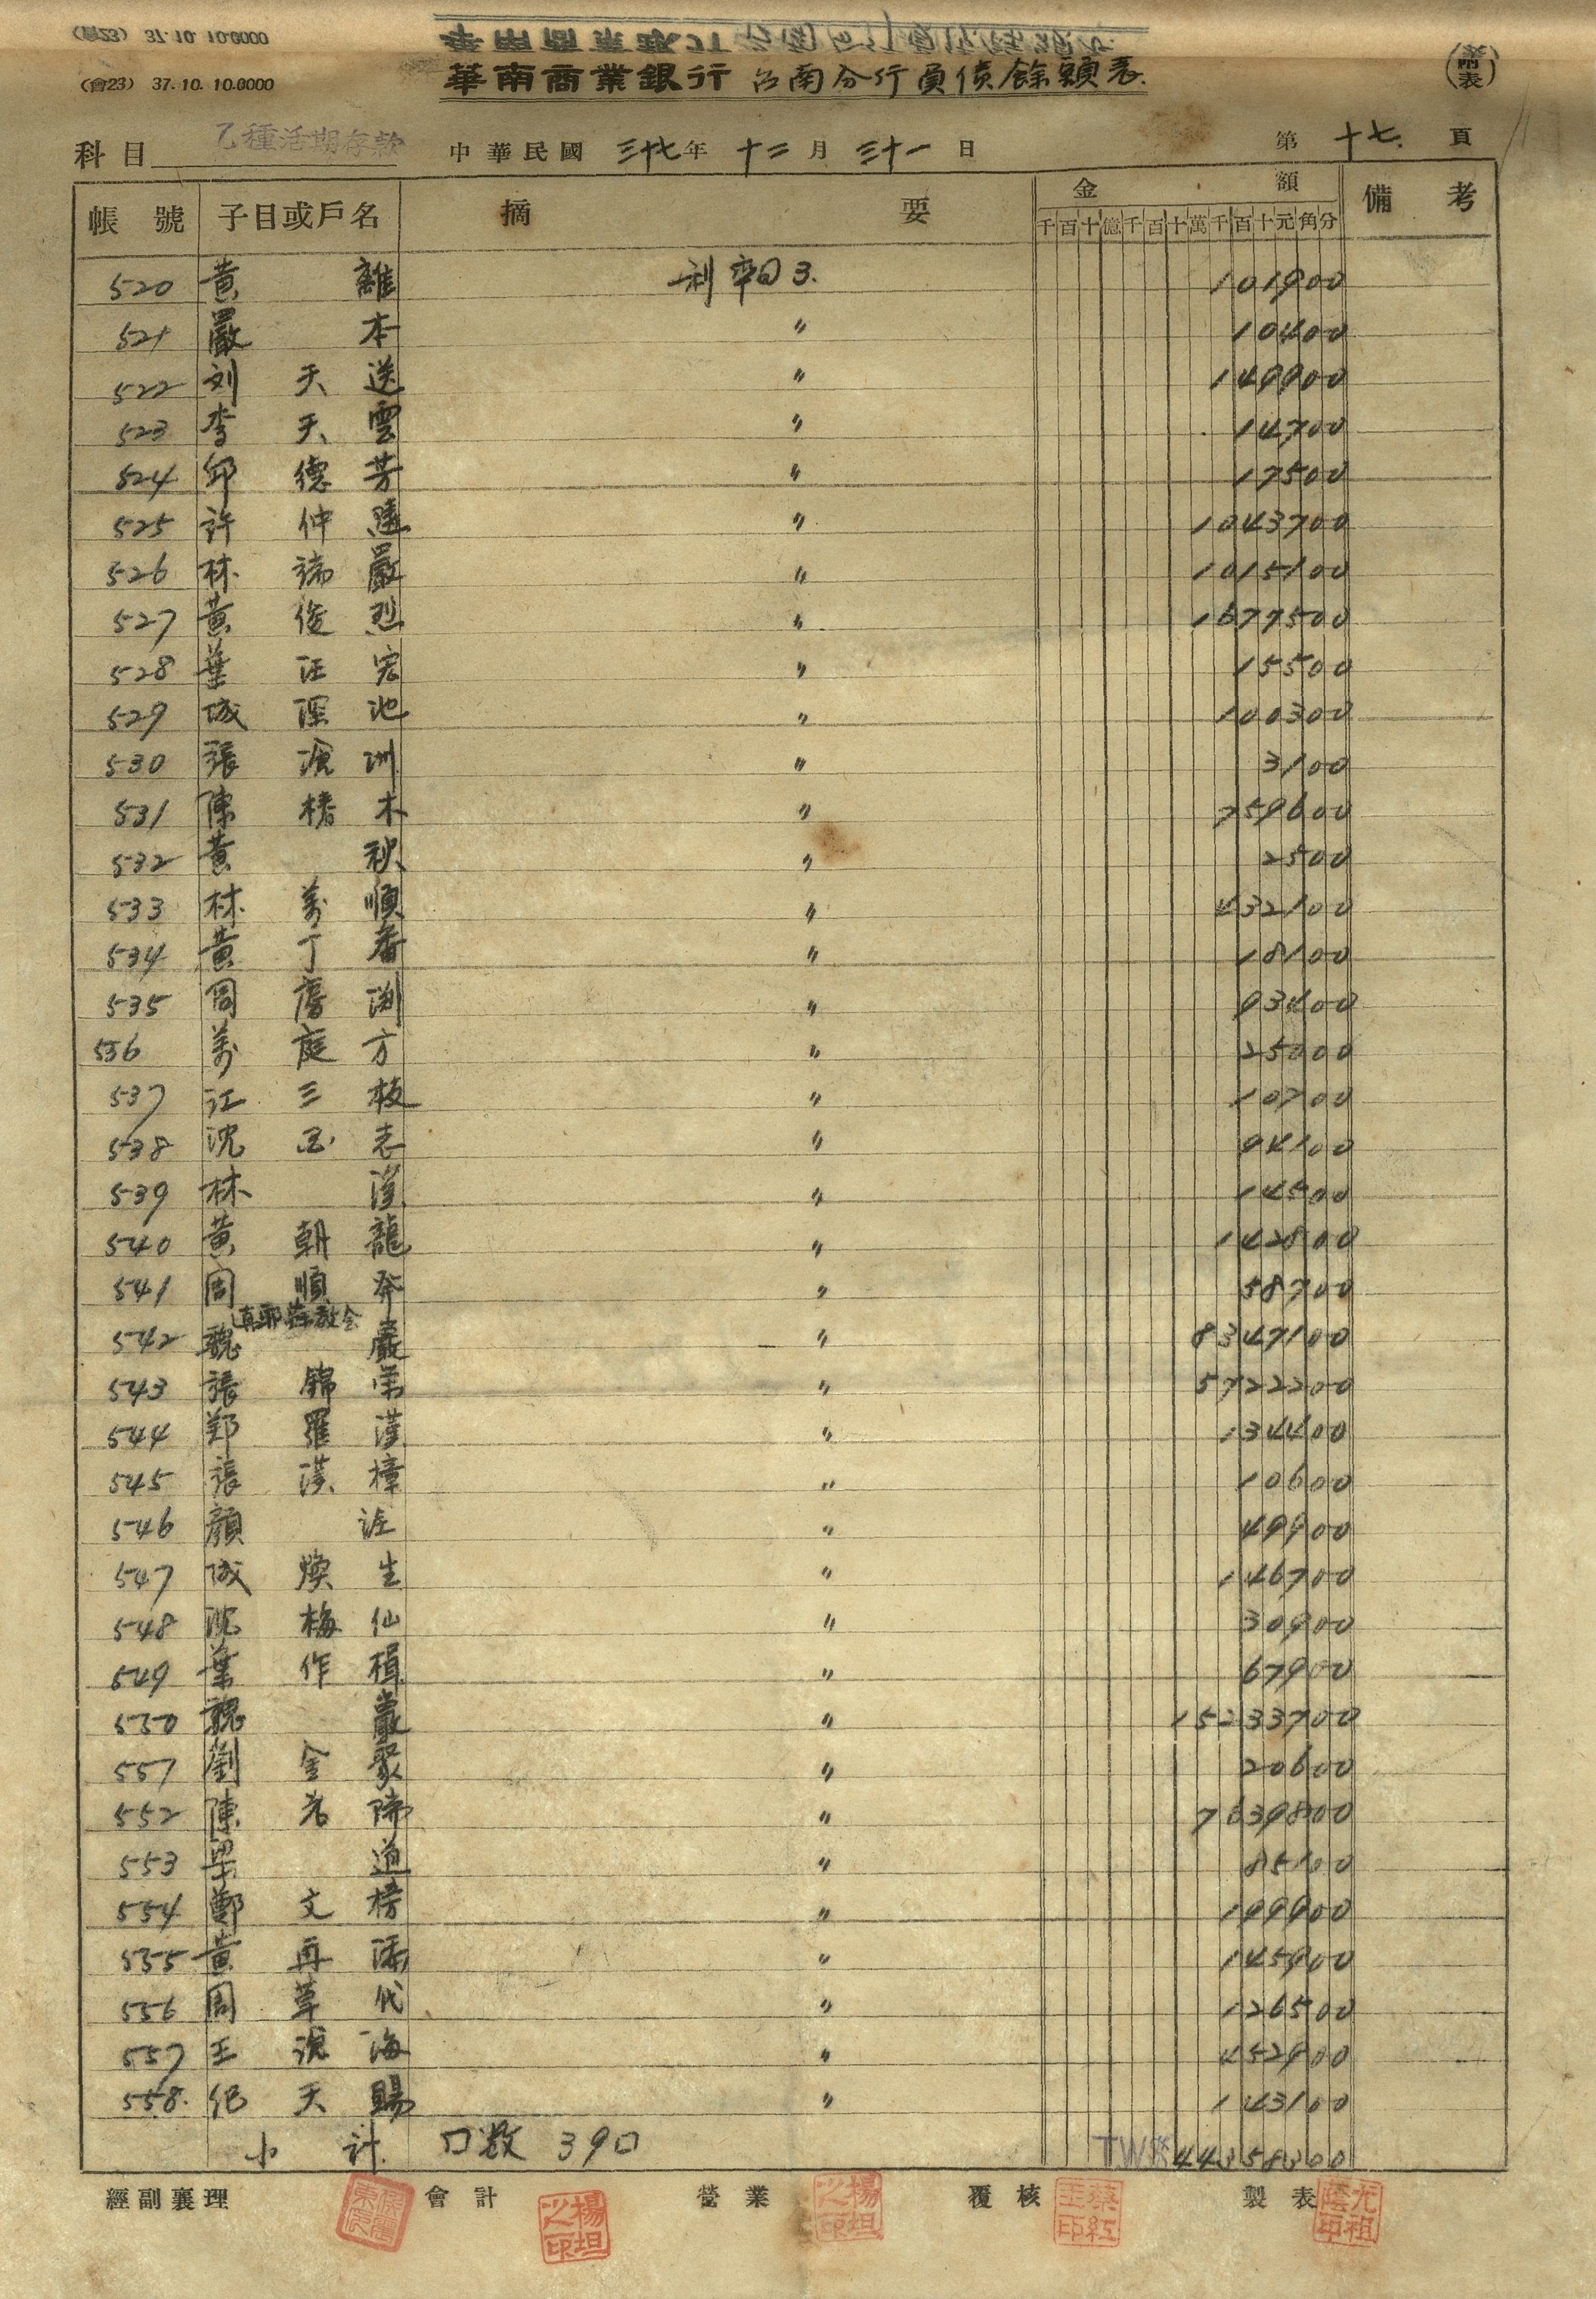 (會23) 37.10. 10.0000
華南商業銀行 台南分行負債餘額表
(附表)
科目 乙種活期存款 中華民國 三十七年 十二月 三十一日 第 十七. 頁
帳號 子目或戶名 摘要 金額 備考
千百十億千百十萬千百十元角分
520 黃 離 利率日3. 101900
521 嚴 本 〃 10400
522 刘天送 〃 149900
523 李天雲 〃 14700
524 邱德芳 〃 17500
525 許仲 〃 1043700
526 林瑞嚴 〃 1015100
527 黃俊烈 〃 1677500
528 葉汪宏 〃 15500
529 城 池 〃 100300
530 張滄洲 〃 3100
531 陳椿木 〃 759600
532 黃 秋 〃 2500
533 林萬順 〃 432100
534 黃丁番 〃 18100
535 周 淵 〃 93400
536 萬庭方 〃 25000
537 江三板 〃 10700
538 沈 志 〃 94100
539 林 漢 〃 14500
540 黃朝龍 〃 142800
541 周順 〃 58700
真耶穌教会
542 魏 巖 〃 8347100
543 張錦榮 〃 5722200
544 郑羅漢 〃 134400
545 張漢樟 〃 10600
546 顏 〃 49900
547 成煥生 〃 146700
548 沈梅仙 〃 30900
549 葉作楫 〃 67900
550 魏 巖 〃 15233700
551 劉金聚 〃 20600
552 陳老 〃 7639800
553 梁 道 〃 85100
554 鄭文榜 〃 199900
555 黃再添 〃 145900
556 周草代 〃 126500
557 王滄海 〃 452900
558. 紀天賜 〃 143100
小計 口数 39口 TW 44358300
經副襄理 會計 楊坦之印 營業 楊坦之印 覆核 蔡紅玉印 製表 尤祖蔭印